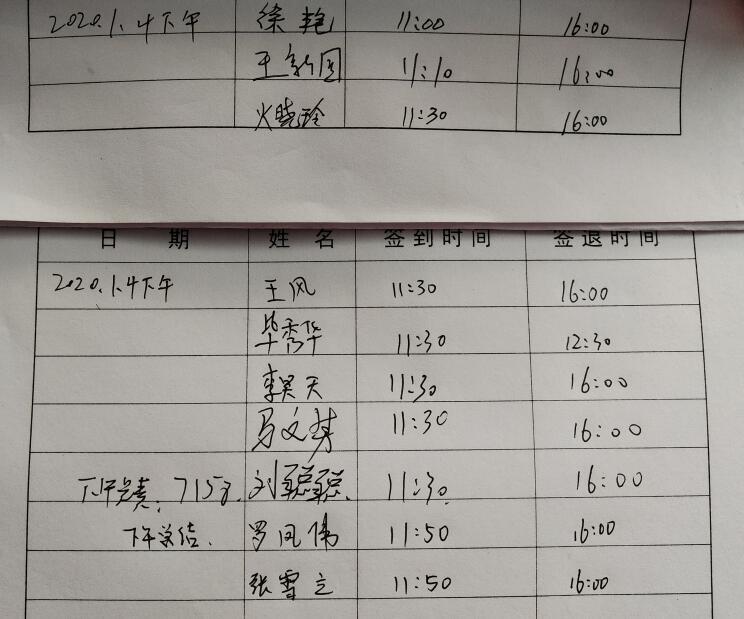 2020.1.4下午 徐艳 11:00 16:00
王新国 11:10 16:00
火晓玲 11:30 16:00
日期 姓名 签到时间 签退时间
2020.1.4下午 王风 11:30 16:00
毕秀华 11:30 12:30
李昊天 11:30 16:00
马文 11:30 16:00
下午 : 715 刘聪聪 11:30 16:00
下午总结. 罗凤伟 11:50 16:00
张雪立 11:50 16:00